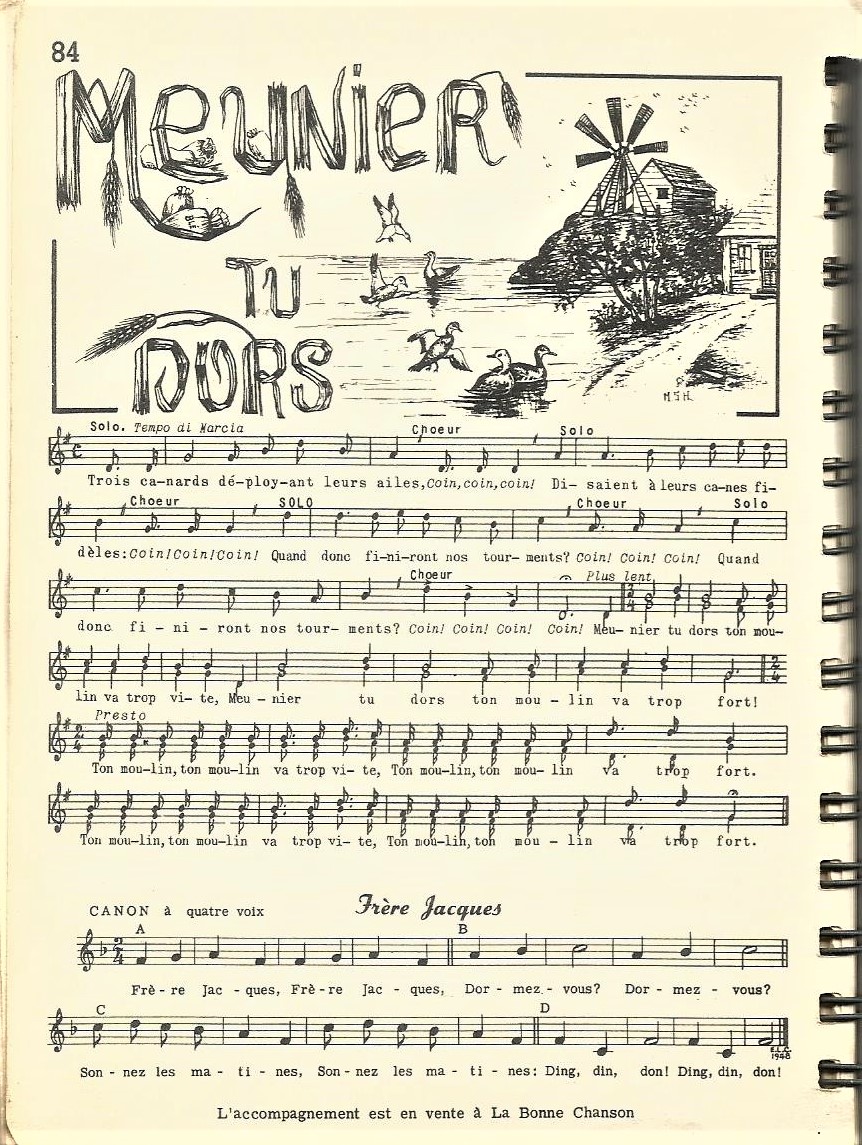 84
MEUNIER
TU
DORS
M.S.H.
Solo. Tempo di Marcia Choeur Solo
Trois ca-nards dé-ploy-ant leurs ailes, Coin, coin, coin! Di- saient à leurs ca-nes fi-
Choeur SOLO Choeur Solo
dèles: Coin! Coin! Coin! Quand donc fi-ni-ront nos tour-ments? Coin! Coin! Coin! Quand
Choeur Plus lent
donc fi - ni - ront nos tour- ments? Coin! Coin! Coin! Coin! Meu- nier tu dors ton mou-
lin va trop vi- te, Meu - nier tu dors ton mou - lin va trop fort!
Presto
Ton mou-lin, ton mou-lin va trop vi- te, Ton mou-lin, ton mou- lin va trop fort.
Ton mou-lin, ton mou-lin va trop vi- te, Ton mou-lin, ton mou - lin va trop fort.
CANON à quatre voix Frère Jacques
A B
Frè - re Jac - ques, Frè - re Jac - ques, Dor - mez - vous? Dor - mez - vous?
C D
Son - nez les ma - ti - nes, Son - nez les ma - ti - nes: Ding, din, don! Ding, din, don!
E.L.C.
1948
L'accompagnement est en vente à La Bonne Chanson